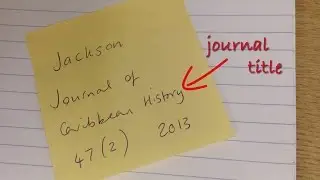 Jackson
Journal of
Caribbean History
47(2) 2013
journal
title